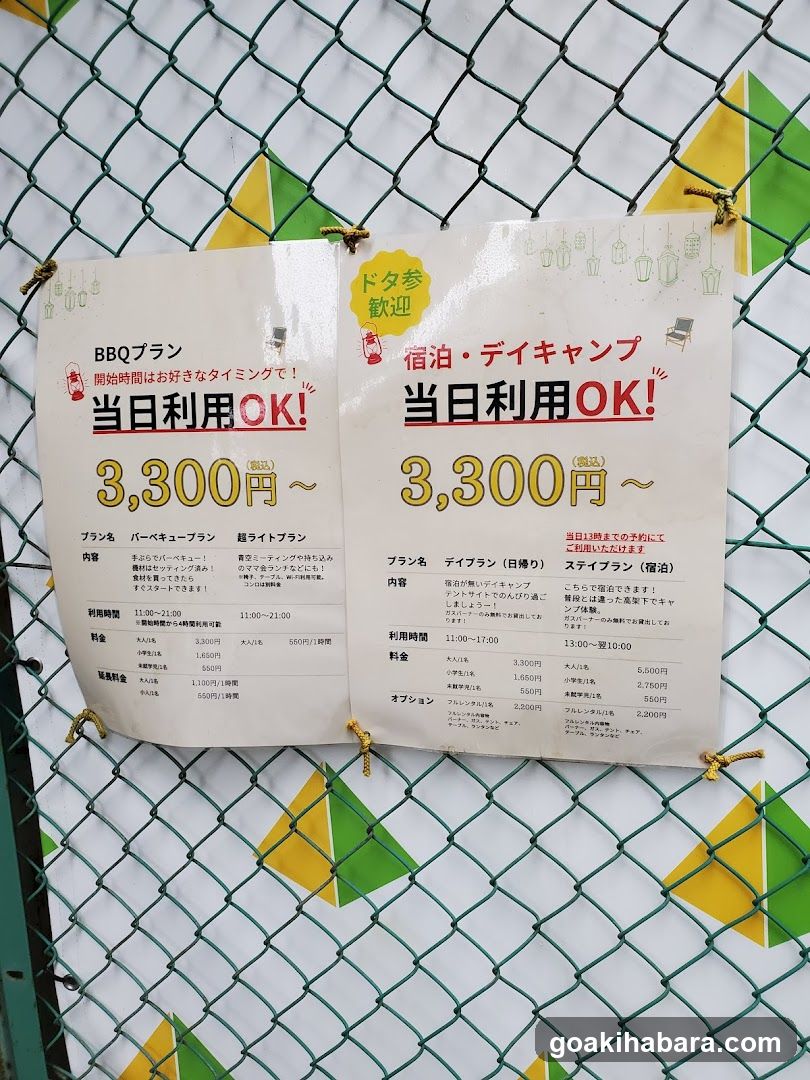 BBQプラン
開始時間はお好きなタイミングで！
当日利用OK!
3,300円(税込)～
プラン名 バーベキュープラン 超ライトプラン
内容
手ぶらでバーベキュー！
機材はセッティング済み！
食材を買ってきたら
すぐスタートできます！
青空ミーティングや持ち込み
のママ会ランチなどにも！
※椅子、テーブル、Wi-Fi利用可能。
コンロは別料金
利用時間 11:00～21:00 11:00～21:00
※開始時間から4時間利用可能
料金 大人/1名 3,300円 大人/1名 550円/1時間
小学生/1名 1,650円
未就学児/1名 550円
延長料金 大人/1名 1,100円/1時間
小人/1名 550円/1時間
ドタ参
歓迎
宿泊・デイキャンプ
当日利用OK!
3,300円(税込)～
当日13時までの予約にて
ご利用いただけます
プラン名 デイプラン（日帰り） ステイプラン（宿泊）
内容
宿泊が無いデイキャンプ
テントサイトでのんびり過ご
しましょうー！
ガスバーナーのみ無料でお貸出してお
ります！
こちらで宿泊できます！
普段とは違った高架下でキャ
ンプ体験。
ガスバーナーのみ無料でお貸出してお
ります！
利用時間 11:00～17:00 13:00～翌10:00
料金 大人/1名 3,300円 大人/1名 5,500円
小学生/1名 1,650円 小学生/1名 2,750円
未就学児/1名 550円 未就学児/1名 550円
オプション フルレンタル/1名 2,200円 フルレンタル/1名 2,200円
フルレンタル内容物
バーナー、ガス、テント、チェア、
テーブル、ランタンなど
フルレンタル内容物
バーナー、ガス、テント、チェア、
テーブル、ランタンなど
goakihabara.com